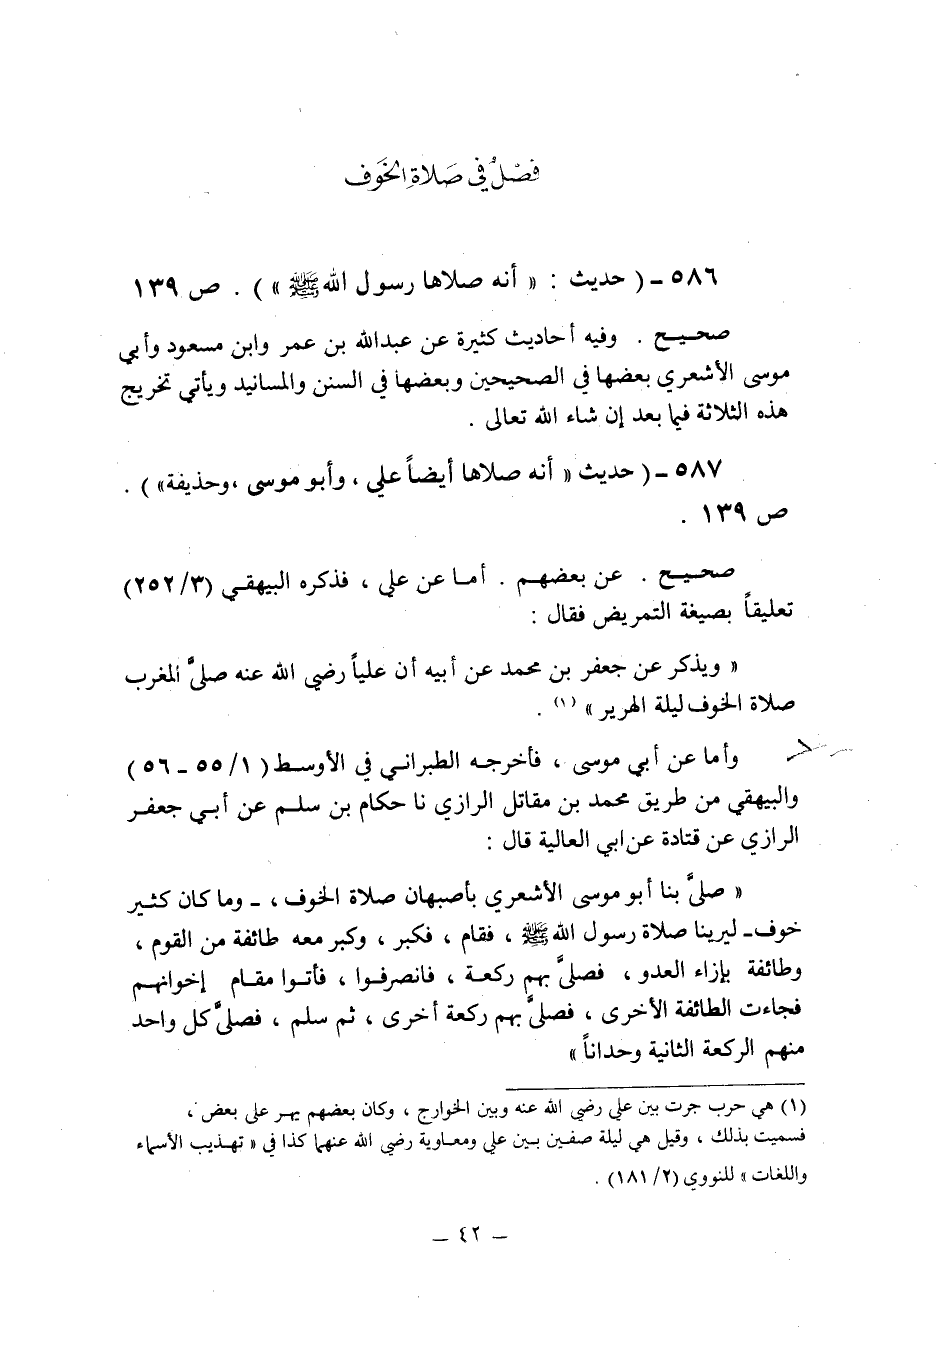 فَصْلٌ في صَلاةِ الخَوف
٥٨٦ ـ ( حديث : « أنه صلاها رسول الله ﷺ » ) . ص ١٣٩
صحيح . وفيه أحاديث كثيرة عن عبدالله بن عمر وابن مسعود وأبي
موسى الأشعري بعضها في الصحيحين وبعضها في السنن والمسانيد ويأتي تخريج
هذه الثلاثة فيما بعد إن شاء الله تعالى .
٥٨٧ ـ ( حديث « أنه صلاها أيضاً علي ، وأبو موسى ،وحذيفة» ) .
ص ١٣٩ .
صحيح . عن بعضهم . أما عن علي ، فذكره البيهقي (٣/ ٢٥٢)
تعليقاً بصيغة التمريض فقال :
« ويذكر عن جعفر بن محمد عن أبيه أن علياً رضي الله عنه صلىَّ المغرب
صلاة الخوف ليلة الهرير » (١) .
وأما عن أبي موسى ، فأخرجه الطبراني في الأوسط ( ١/ ٥٥ ـ ٥٦ )
والبيهقي من طريق محمد بن مقاتل الرازي نا حكام بن سلم عن أبي جعفر
الرازي عن قتادة عن ابي العالية قال :
« صلىَّ بنا أبو موسى الأشعري بأصبهان صلاة الخوف ، ـ وما كان كثير
خوف ـ ليرينا صلاة رسول الله ﷺ ، فقام ، فكبر ، وكبر معه طائفة من القوم ،
وطائفة بإزاء العدو ، فصلىَّ بهم ركعة ، فانصرفوا ، فأتوا مقام إخوانهم
فجاءت الطائفة الأخرى ، فصلىَّ بهم ركعة أخرى ، ثم سلم ، فصلىَّ كل واحد
منهم الركعة الثانية وحداناً »
(١) هي حرب جرت بين علي رضي الله عنه وبين الخوارج ، وكان بعضهم يهر على بعض ،
فسميت بذلك ، وقيل هي ليلة صفين بين علي ومعاوية رضي الله عنهما كذا في « تهذيب الأسماء
واللغات » للنووي (٢/ ١٨١) .
ـ ٤٢ ـ